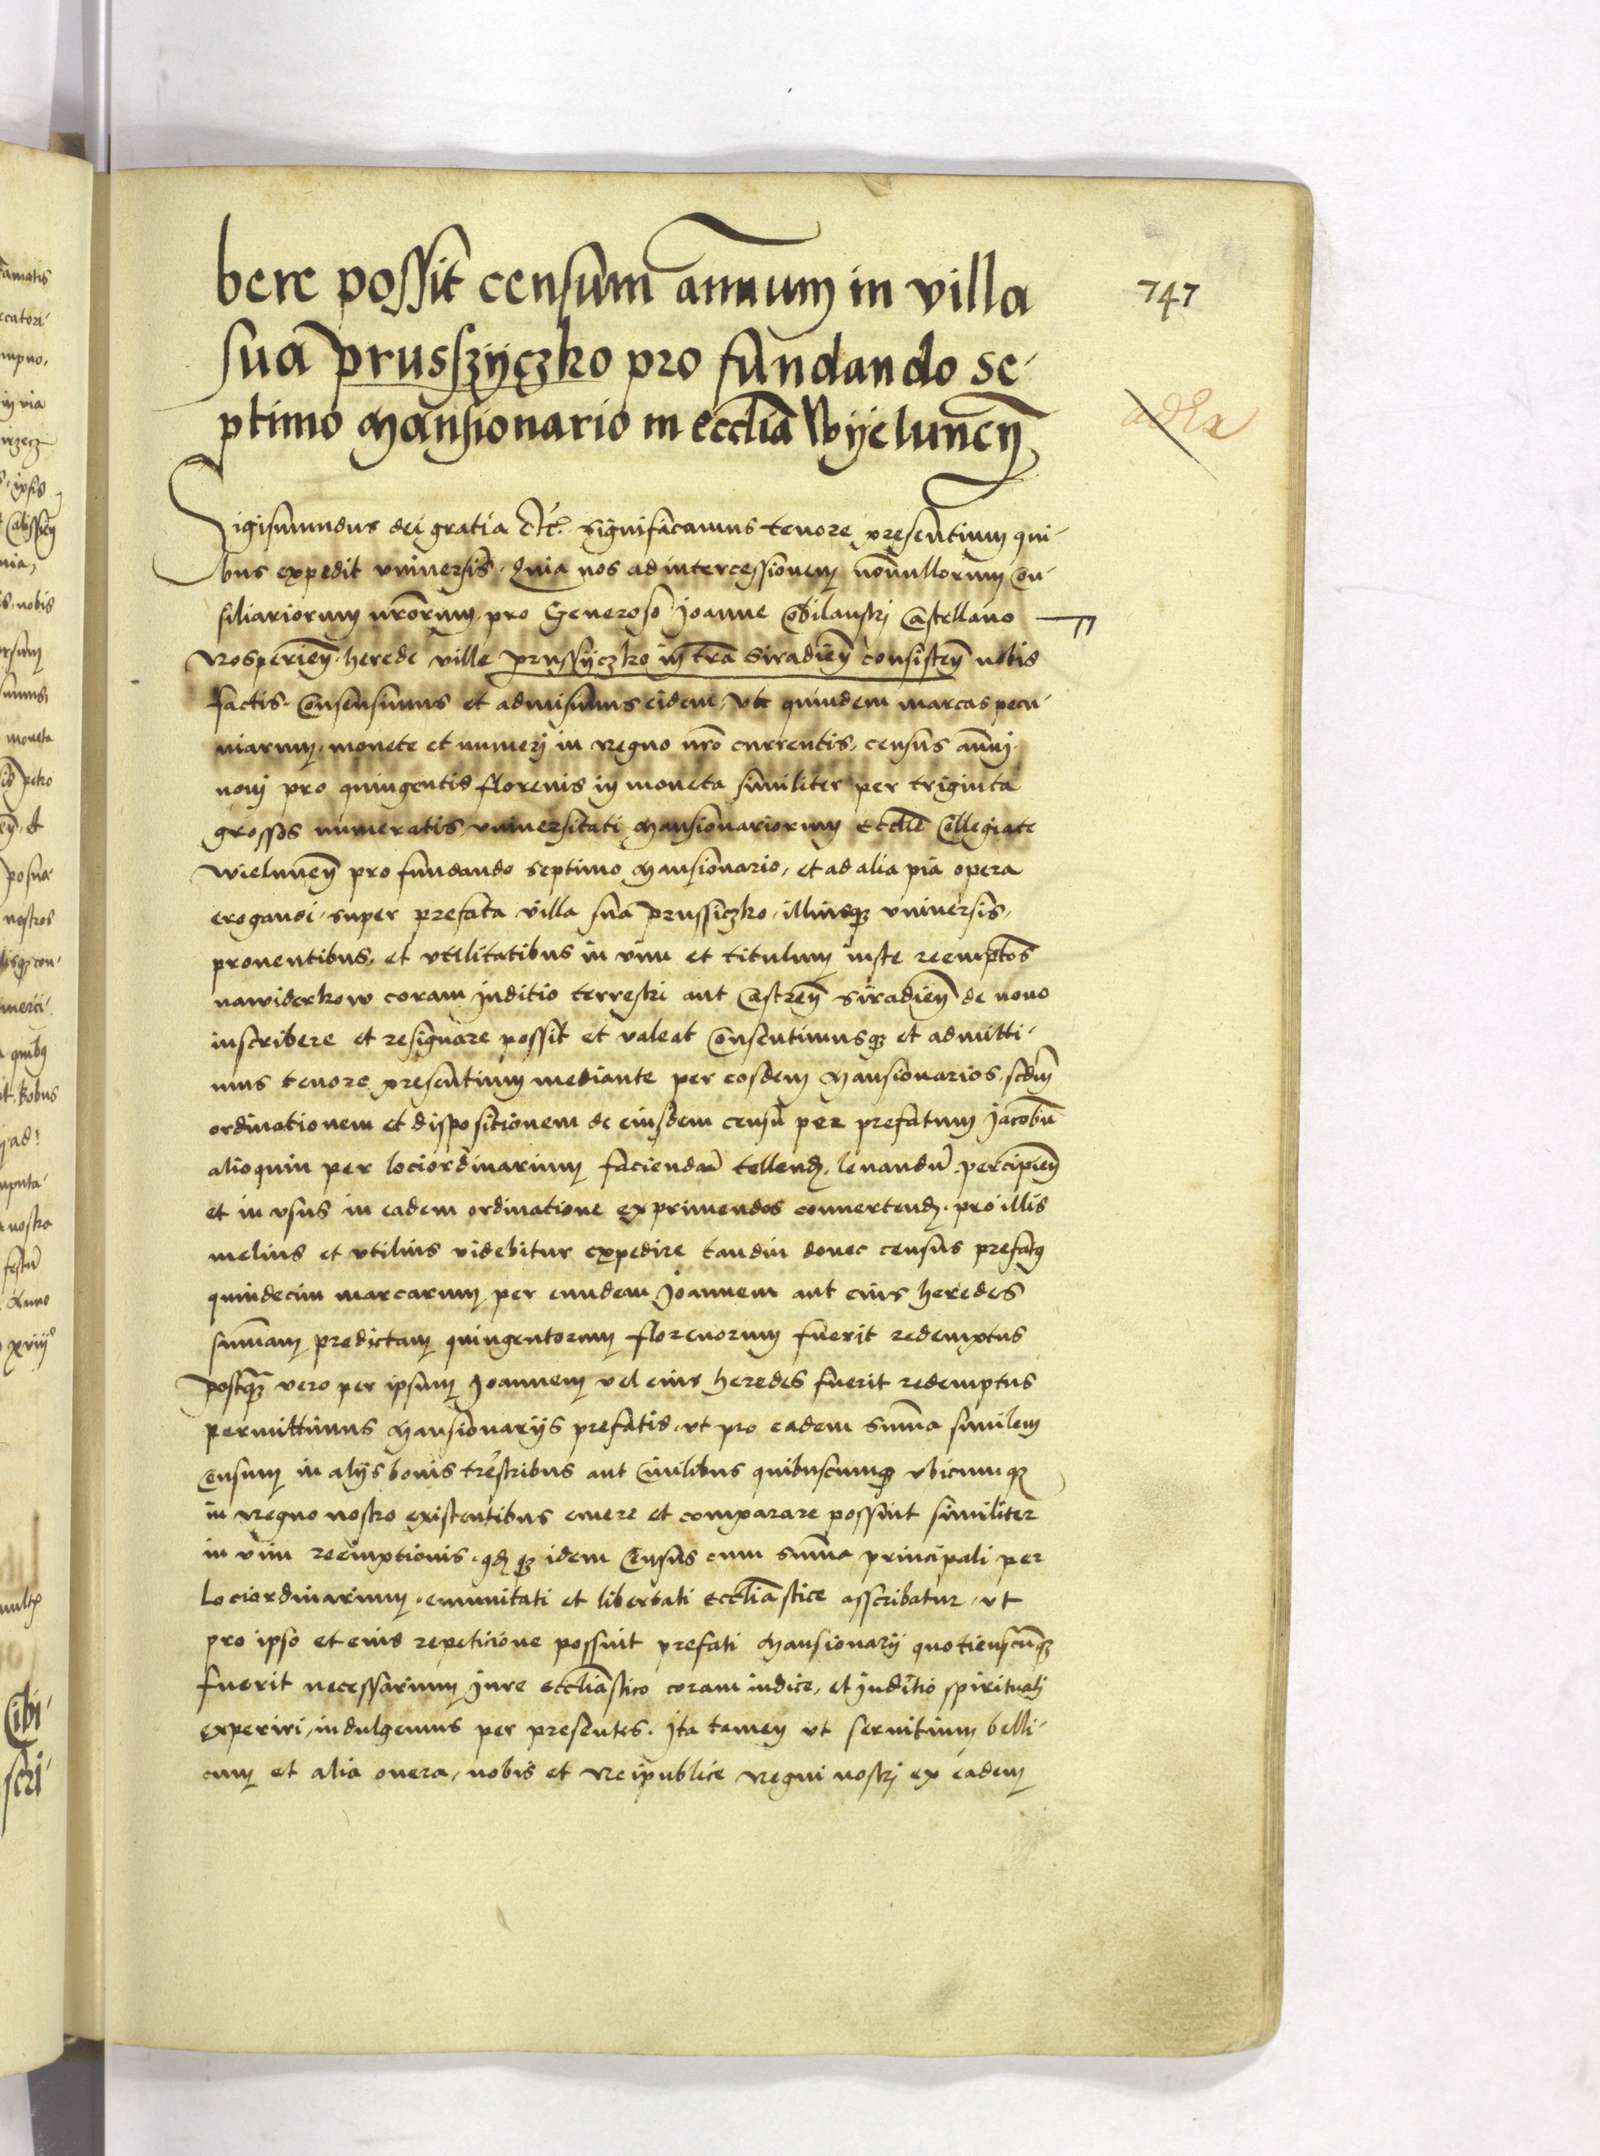 bere possit censum annuum in villa
747
sua prusszyczko pro fundando se-
ptimo Mansionario in eccłia Wyeluneñ
Sigismundus dei gratia etc. significamus tenore presentium qui-
bus expedit vniversis. Quia nos ad intercessionem nonnullorum con-
siliariorum nr̃orum pro Generoso Joanne Castellano
Rosperieñ. herede ville prussyczko in tr̃a Siradieñ consisteñ nobis
factis. Consensimus et admisimus eidem, vt quindem marcas pecu-
niarum, monete et numeri in regno nr̃o currentis, census annui
noui pro quingentis florenis in moneta similiter per triginta
grossos numeratis vniuersitati Mansionariorum Eccłie Collegiate
wieluneñ pro fundando septimo Mansionario, et ad alia pia opera
erogandi, super prefata villa sua prussiczko, illiusq3 vniuersis,
prouentibus, et vtilitatibus in vim et titulum iuste reemptois
nawiderkow coram Juditio terrestri aut Castreñ Siradieñ de nouo
inscribere et resignare possit et valeat Consentimusq3 et admitti-
mus tenore presentium mediante per eosdem Mansionarios, scdm
ordinationem et dispositionem de eiusdem censu per prefatum Jacobū
alioquin per lociordinarium faciendā tollend. leuandū percipieñ
et in vsus in eadem ordinatione exprimendos conuertend. pro illis
melius et vtilius videbitur expedire tamdiu donec census prefatus
quindecim marcarum per eundem Joannem aut eius heredes
summam predictam quingentorum florenorum fuerit redemptus
postq3 vero per ipsum Joannem vel eius heredes fuerit redemptus
permittimus Mansionarijs prefatis, vt pro eadem summa similem
Censum in alijs bonis tr̃estribus aut Ciuilibus quibuscumq3 vbicumq3
in regno nostro existentibus emere et comparare possint similiter
in vim reemptionis. qd q3 idem Census cum summa principali per
Lociordinarium, emunitati et libertati eccłiastice asscribatur, vt
pro ipso et eius repeticione possint prefati Mansionarij quotienscūq3
fuerit necessarium Jure eccłiastico coram iudice, et Juditio spirituali
experiri, indulgemus per presentes. Ita tamen vt seruitium belli-
cum et alia onera, nobis et Reipublice regni nostri ex eadem